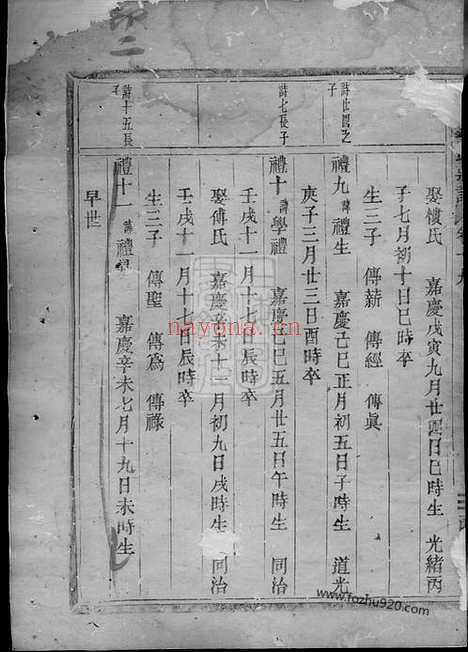 娶樓氏 嘉慶戊寅九月廿四日巳時生 光緒丙
子七月初十日巳時卒
生三子 傳薪 傳經 傳眞
詩廿四之
子
禮九 諱禮生 嘉慶己巳正月初五日子時生 道光
庚子三月廿三日酉時卒
詩七長子
禮十 諱學禮 嘉慶己巳五月廿五日午時生 同治
壬戌十一月十七日辰時卒
娶傅氏 嘉慶辛未十二月初九日戌時生 同治
壬戌十一月十七日辰時卒
生三子 傳聖 傳為 傳祿
詩十五長
子
禮十一 諱禮 嘉慶辛未七月十九日未時生
早世
nayona.cn
www.fozhu920.com